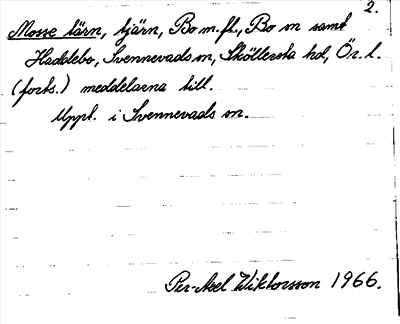 2.
Mosse tärn, tjärn, Bo m.fl., Bo sn samt
Haddebo, Svennevads sn, Sköllersta hd, Ör. l.
(forts.) meddelarna till.
Uppt. i Svennevads sn.
Per-Axel Wiktorsson 1966.